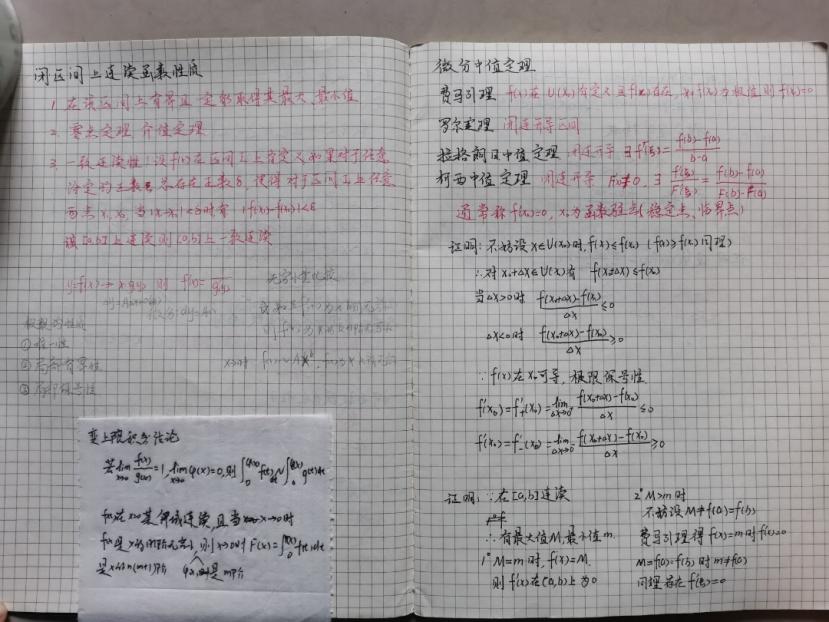 闭区间上连续函数性质
1. 在该区间上有界且一定能取得其最大、最小值
2. 零点定理 介值定理
3. 一致连续性:设f(x)在区间I上有定义 如果对于任意
给定的正数ε总存在正数δ,使得对于区间I上任意
两点x₁,x₂, 当|x₁-x₂|<δ时有 |f(x₁)-f(x₂)|<ε
该[a,b]上连续则[a,b]上一致连续
y=f(x) → x=g(y) 则 f'(x)=
无穷小量比较
极限的性质
①唯一性
②局部有界性
③局部保号性
变上限积分结论
若lim x→0 f(x)/g(x)=1, lim x→0 φ(x)=0,则∫₀^φ(x) f(t)dt~∫₀^φ(x) g(t)dt
f(x)在x=0某邻域连续,且当x→0时
f(x)是x的n阶无穷小,则x→0时F(x)=∫₀^φ(x) f(t)dt
是x的n(m+1)阶 φ(x)是m阶
微分中值定理
费马引理 f(x)在U(x₀)有定义且f'(x₀)存在, f(x₀)为极值则f'(x₀)=0
罗尔定理 闭连开导区间
拉格朗日中值定理 闭连开导 ∃f'(ξ)=(f(b)-f(a))/(b-a)
柯西中值定理 闭连开导 F'(x)≠0, ∃ f'(ξ)/F'(ξ)=(f(b)-f(a))/(F(b)-F(a))
通常称f'(x₀)=0, x₀为函数驻点(稳定点、临界点)
证明:不妨设x∈U(x₀)时,f(x)≤f(x₀) (f(x)≥f(x₀)同理)
∴对x₀+Δx∈U(x₀)有 f(x₀+Δx)≤f(x₀)
当Δx>0时 (f(x₀+Δx)-f(x₀))/Δx≤0
Δx<0时 (f(x₀+Δx)-f(x₀))/Δx≥0
∵f(x)在x₀可导,极限保号性
f'(x₀)=f'₊(x₀)=lim Δx→0⁺ (f(x₀+Δx)-f(x₀))/Δx≤0
f'(x₀)=f'₋(x₀)=lim Δx→0⁻ (f(x₀+Δx)-f(x₀))/Δx≥0
证明:∵在[a,b]连续
∴有最大值M,最小值m.
1° M=m时,f(x)=M.
则f'(x)在(a,b)上为0
2° M>m时
不妨设M≠f(a)=f(b)
费马引理得f(x)=m时f'(x)=0
M=f(a)=f(b)时m≠f(a)
同理存在f'(ξ)=0